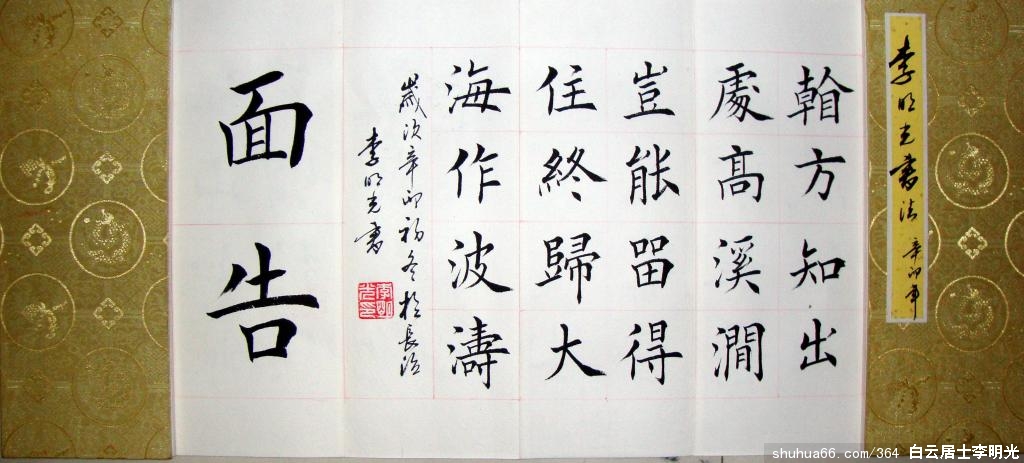 李明光書法 辛卯年
方知出
處高溪澗
豈能留得
住終歸大
海作波濤
歲次辛卯初冬於長治
李明光書
李明光印
面告
shuhua66.com/364 白云居士李明光